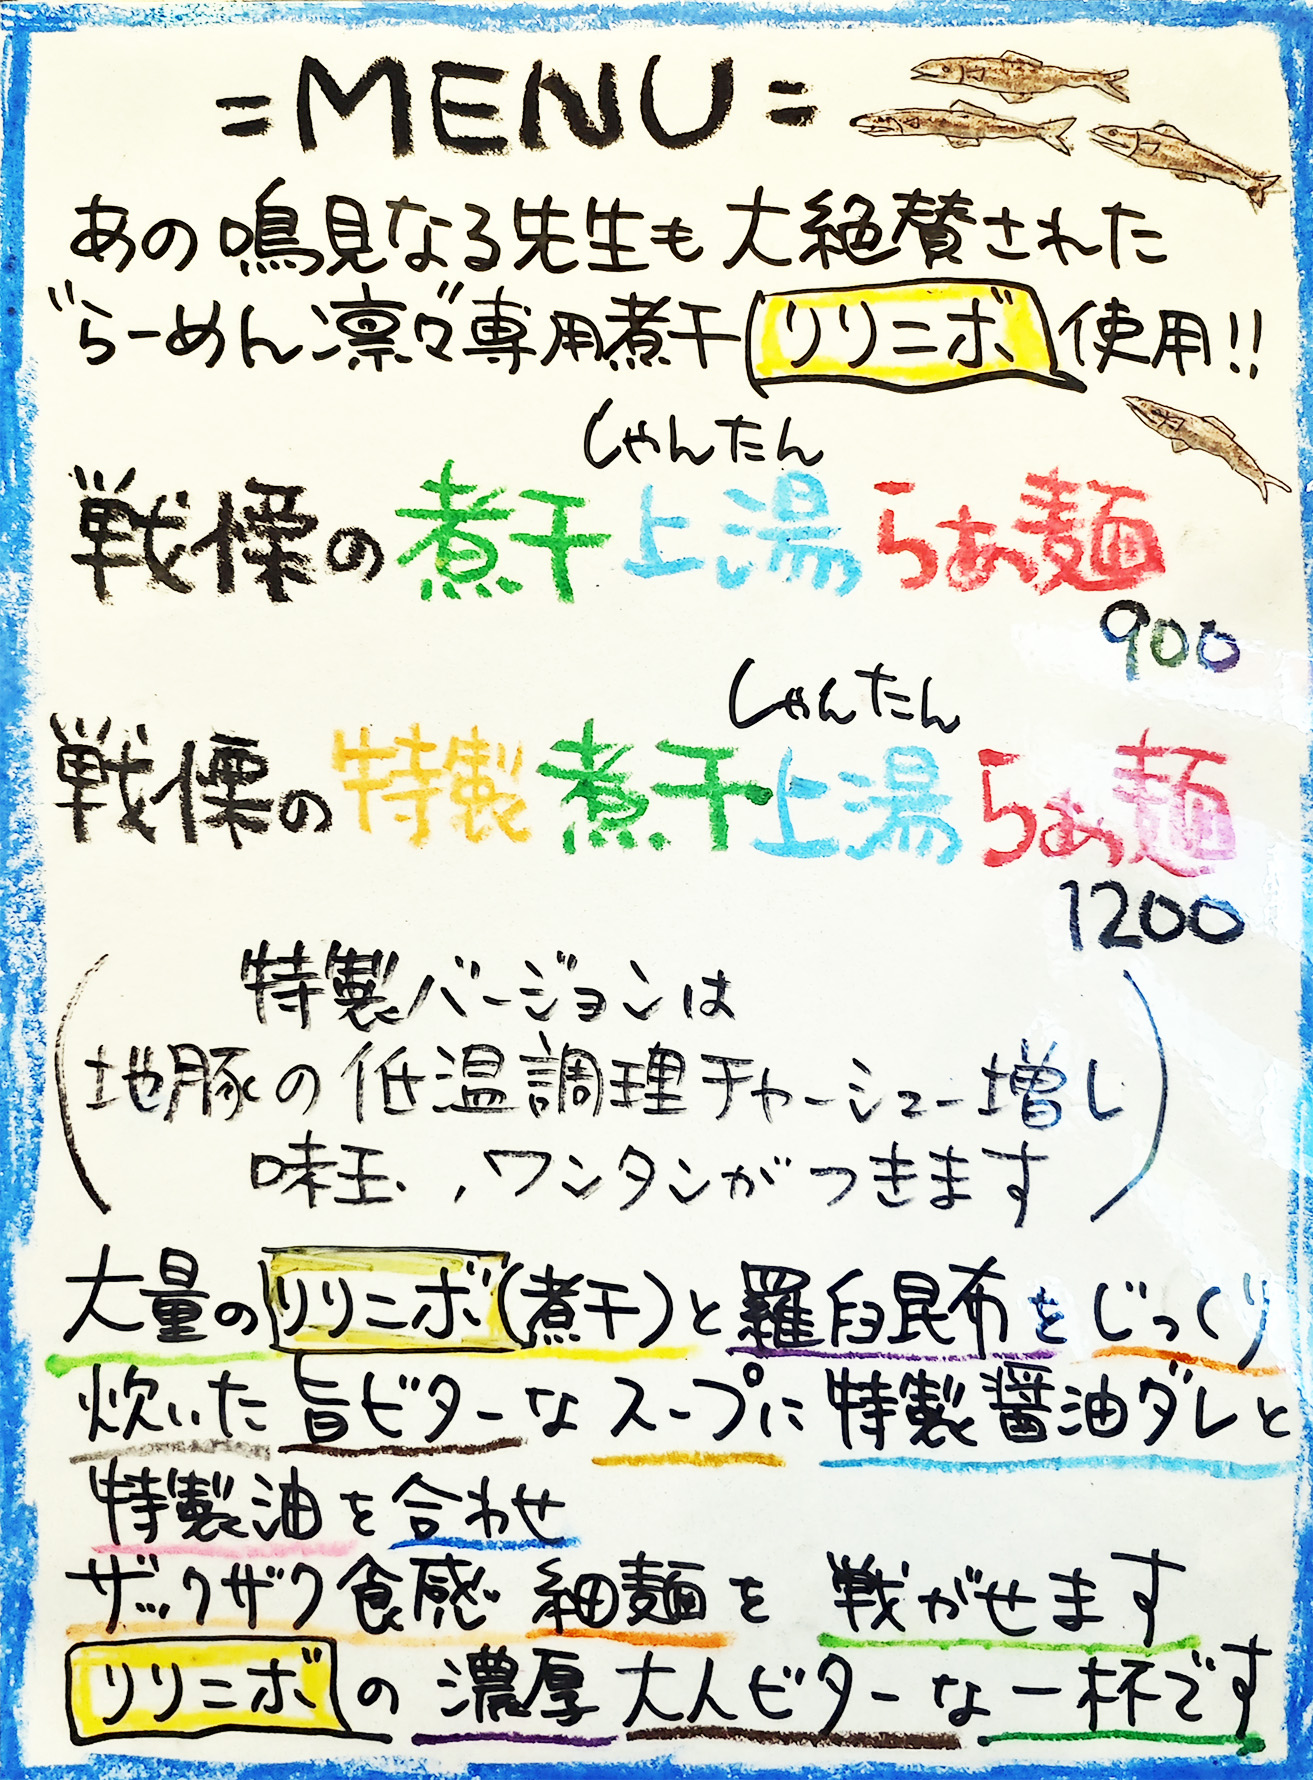 =MENU=
あの鳴見なる先生も大絶賛された
"らーめん凛々"専用煮干リリニボ使用!!
しゃんたん
戦慄の煮干上湯らぁ麺
900
しゃんたん
戦慄の特製煮干上湯らぁ麺
1200
(特製バージョンは
地豚の低温調理チャーシュー増し
味玉、ワンタンがつきます)
大量のリリニボ(煮干)と羅臼昆布をじっくり
炊いた旨ビターなスープに特製醤油ダレと
特製油を合わせ
ザックザク食感細麺を戦がせます
リリニボの濃厚大人ビターな一杯です